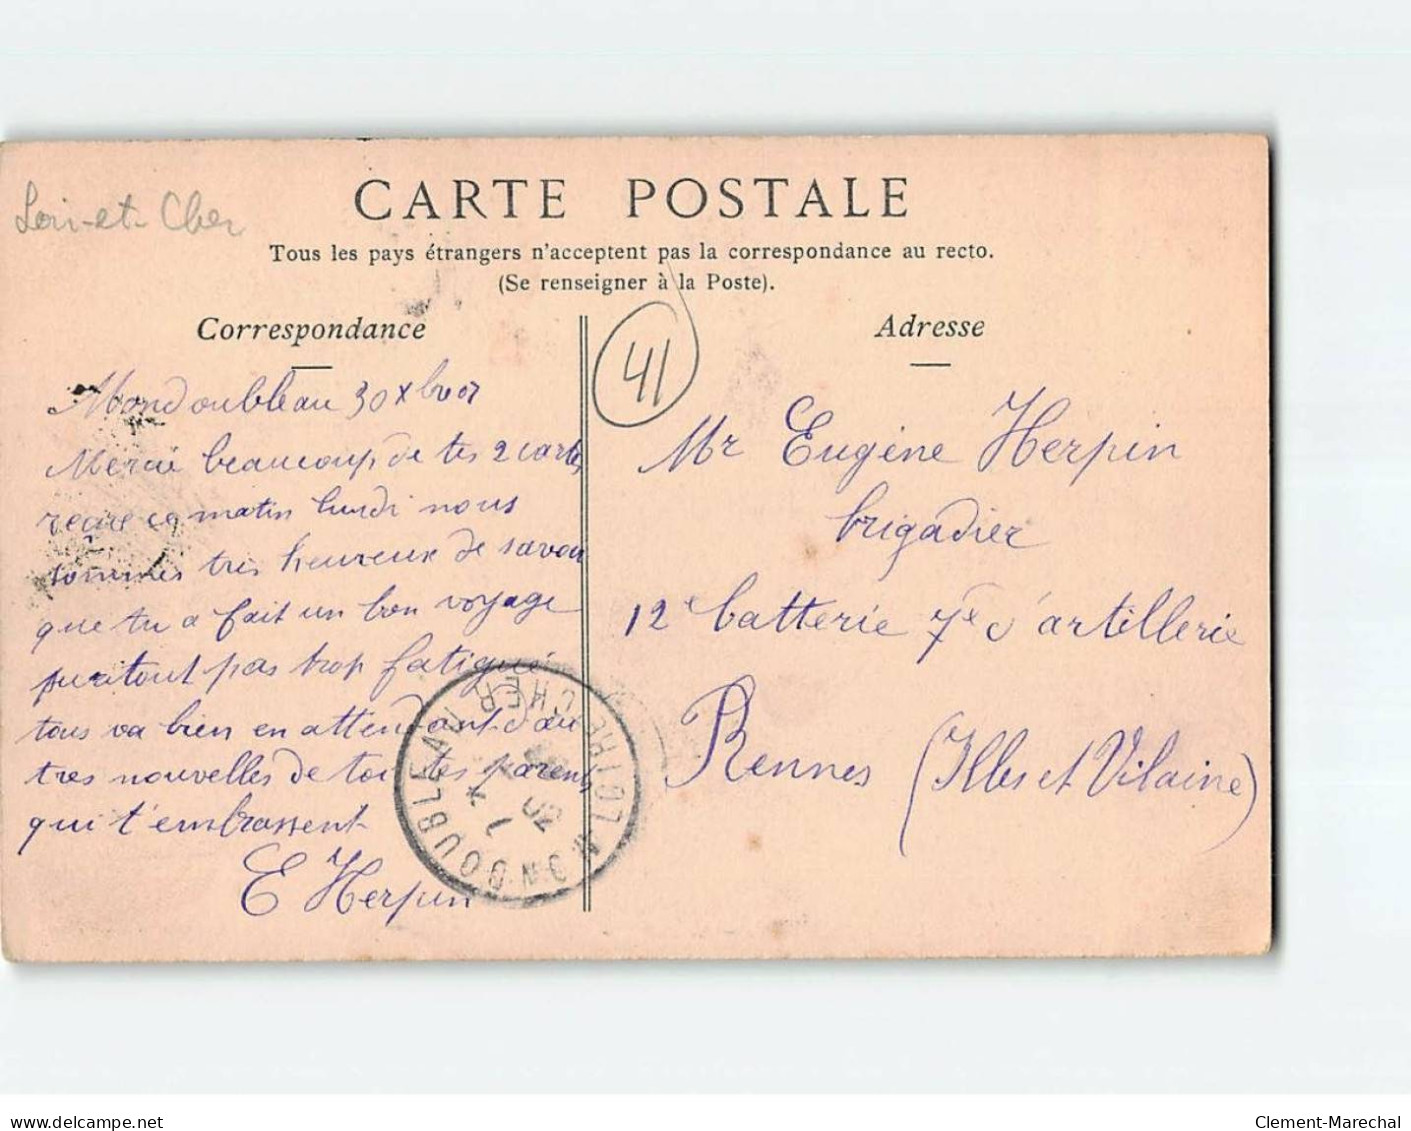 Loir-et-Cher
CARTE POSTALE
Tous les pays étrangers n'acceptent pas la correspondance au recto.
(Se renseigner à la Poste).
Correspondance
Mondoubleau 30 Xbre 07
Merci beaucoup de tes 2 cartes
reçue ce matin lundi nous
sommes très heureux de savoir
que tu a fait un bon voyage
surtout pas trop fatigué
tous va bien en attendant d'au
tres nouvelles de toi tes parents
qui t'embrassent
E Herpin
41
Adresse
Mr Eugène Herpin
brigadier
12e batterie 7e d'artillerie
Rennes (Illes et Vilaine)
MONDOUBLEAU LOIR ET CHER
delcampe.net
Clement-Marechal